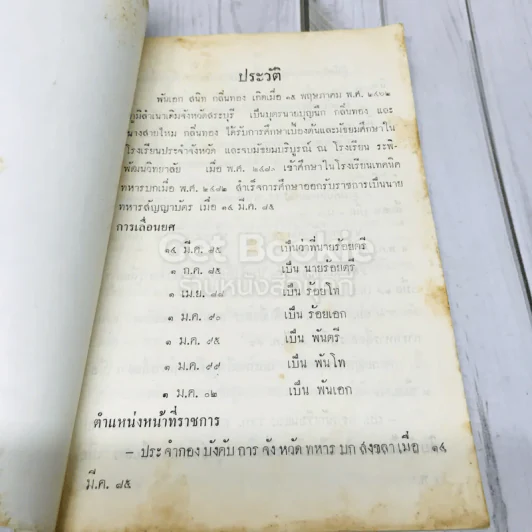 ประวัติ
พันเอก สนิท กลิ่นทอง เกิดเมื่อ ๑๕ พฤษภาคม พ.ศ. ๒๔๖๒
ภูมิลำเนาเดิมจังหวัดสระบุรี เป็นบุตรนายบุญนึก กลิ่นทอง และ
นางสายไหม กลิ่นทอง ได้รับการศึกษาเบื้องต้นและมัธยมศึกษาใน
โรงเรียนประจำจังหวัด และจบมัธยมบริบูรณ์ ณ โรงเรียน ระพิ-
พัฒน์วิทยาลัย เมื่อ พ.ศ. ๒๔๘๐ เข้าศึกษาในโรงเรียนเทคนิค
ทหารบกเมื่อ พ.ศ. ๒๔๘๒ สำเร็จการศึกษาออกรับราชการเป็นนาย
ทหารสัญญาบัตร เมื่อ ๑๔ มี.ค. ๘๕
การเลื่อนยศ
Get Bookie
ร้านหนังสือ
๑๔ มี.ค. ๘๕ เป็นว่าที่นายร้อยตรี
๑ ก.ค. ๘๕ เป็น นายร้อยตรี
๑ เม.ย. ๘๘ เป็น ร้อยโท
๑ ม.ค. ๙๐ เป็น ร้อยเอก
๑ ม.ค. ๙๕ เป็น พันตรี
๑ ม.ค. ๙๙ เป็น พันโท
๑ ม.ค. ๐๒ เป็น พันเอก
ตำแหน่งหน้าที่ราชการ
– ประจำกองบังคับการจังหวัดทหารบกสงขลาเมื่อ ๑๔
มี.ค. ๘๕